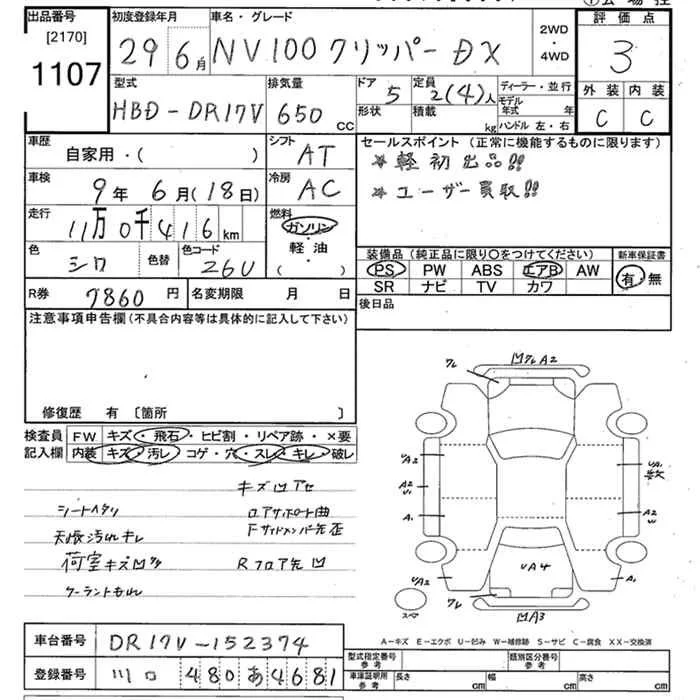 出品番号
[2170]
1107
初度登録年月
29 6月
車名・グレード
NV100クリッパー DX
2WD
・
4WD
評価点
3
外装 内装
C C
型式
HBD-DR17V
排気量
650 CC
ドア
5
形状
定員
2(4)人
積載
kg
ディーラー・並行
モデル年式 年
ハンドル 左・右
車歴
自家用・( )
シフト
AT
車検
9年 6月(18日)
冷房
AC
走行
11万0千416km
燃料
ガソリン
・
軽・油
・
( )
色
シロ
色替
色コード
26U
セールスポイント(正常に機能するものに限ります)
★軽初出品!!
★ユーザー買取!!
装備品(純正品に限り○をつけてください)
PS PW ABS エアB AW
SR ナビ TV カワ
新車保証書
有・無
R券 9860円
名変期限 月 日
後日品
注意事項申告欄(不具合内容等は具体的に記入して下さい)
修復歴 有 〔箇所 〕
検査員記入欄
FW キズ・飛石・ヒビ割・リペア跡・×要
内装 キズ・汚レ・コゲ・穴・スレ・キレ・破レ
シートヘタリ
天張汚れキレ
荷室キズ凹多
クーラントもれ
キズ凹アセ
ロアサポート曲
Fサイドメンバー先歪
Rフロア先凹
ワレ
凹ワレA2
UA2
A2
A1
UA2
UA1
数
A2
W
A1
UA4
ワレ
凹A3
スペア
A-キズ E-エクボ U-凹み W-補修跡 S-サビ C-腐食 XX-交換済
車台番号 DR17V-152374
登録番号 川口 480 あ 4681
型式指定番号 参考
類別区分番号 参考
車庫証明用 参考
長さ cm
幅 cm
高さ cm